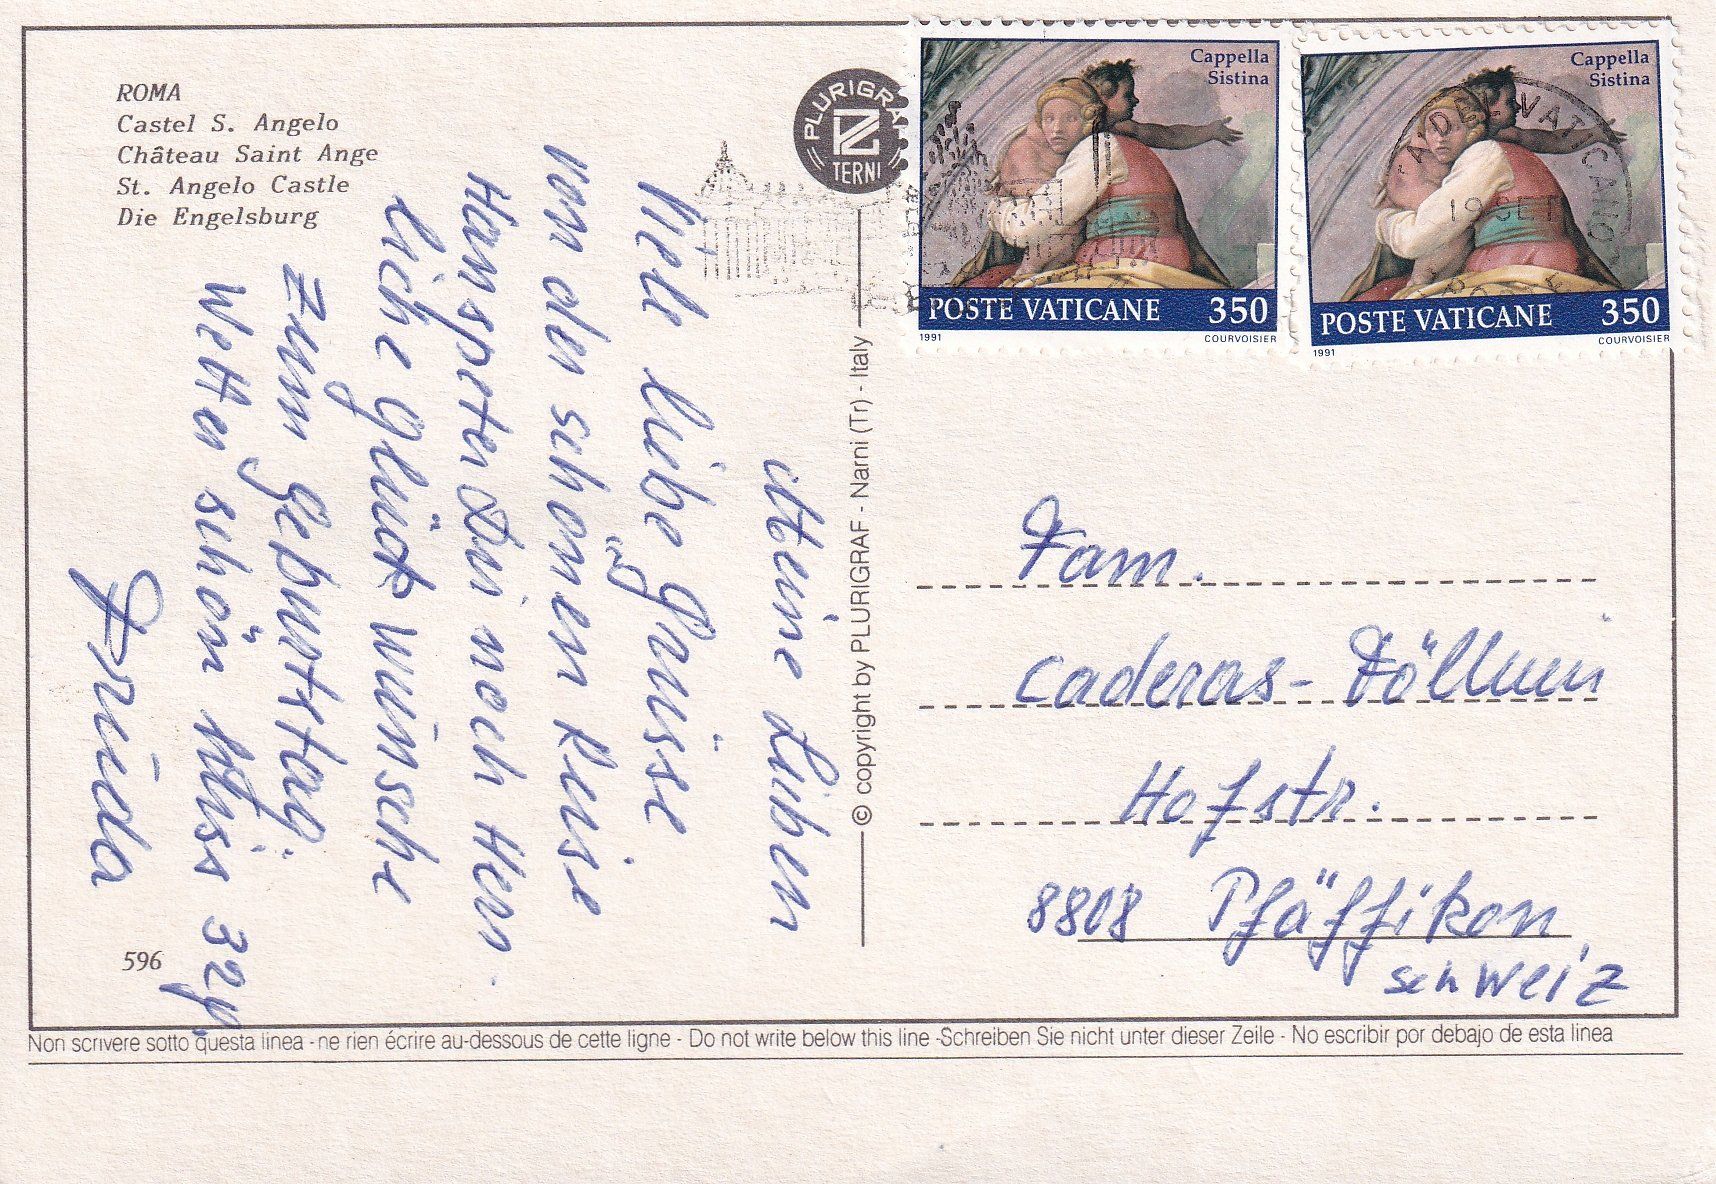 ROMA
Castel S. Angelo
Château Saint Ange
St. Angelo Castle
Die Engelsburg
PLURIGRAF
TERNI
Cappella
Sistina
POSTE VATICANE 350
1991 COURVOISIER
Cappella
Sistina
POSTE VATICANE 350
1991 COURVOISIER
VATICANO
19 SET
Meine Lieben
Viele liebe Grüsse
von der schönen Reise
Hanspeter Dir noch Herz-
liche Glückwünsche
zum Geburtstag.
Wetter schön bis 32g.
Frieda
Fam.
Caderas-
Hofstr.
8808 Pfäffikon
Schweiz
© copyright by PLURIGRAF - Narni (Tr) - Italy
596
Non scrivere sotto questa linea - ne rien écrire au-dessous de cette ligne - Do not write below this line -Schreiben Sie nicht unter dieser Zeile - No escribir por debajo de esta linea